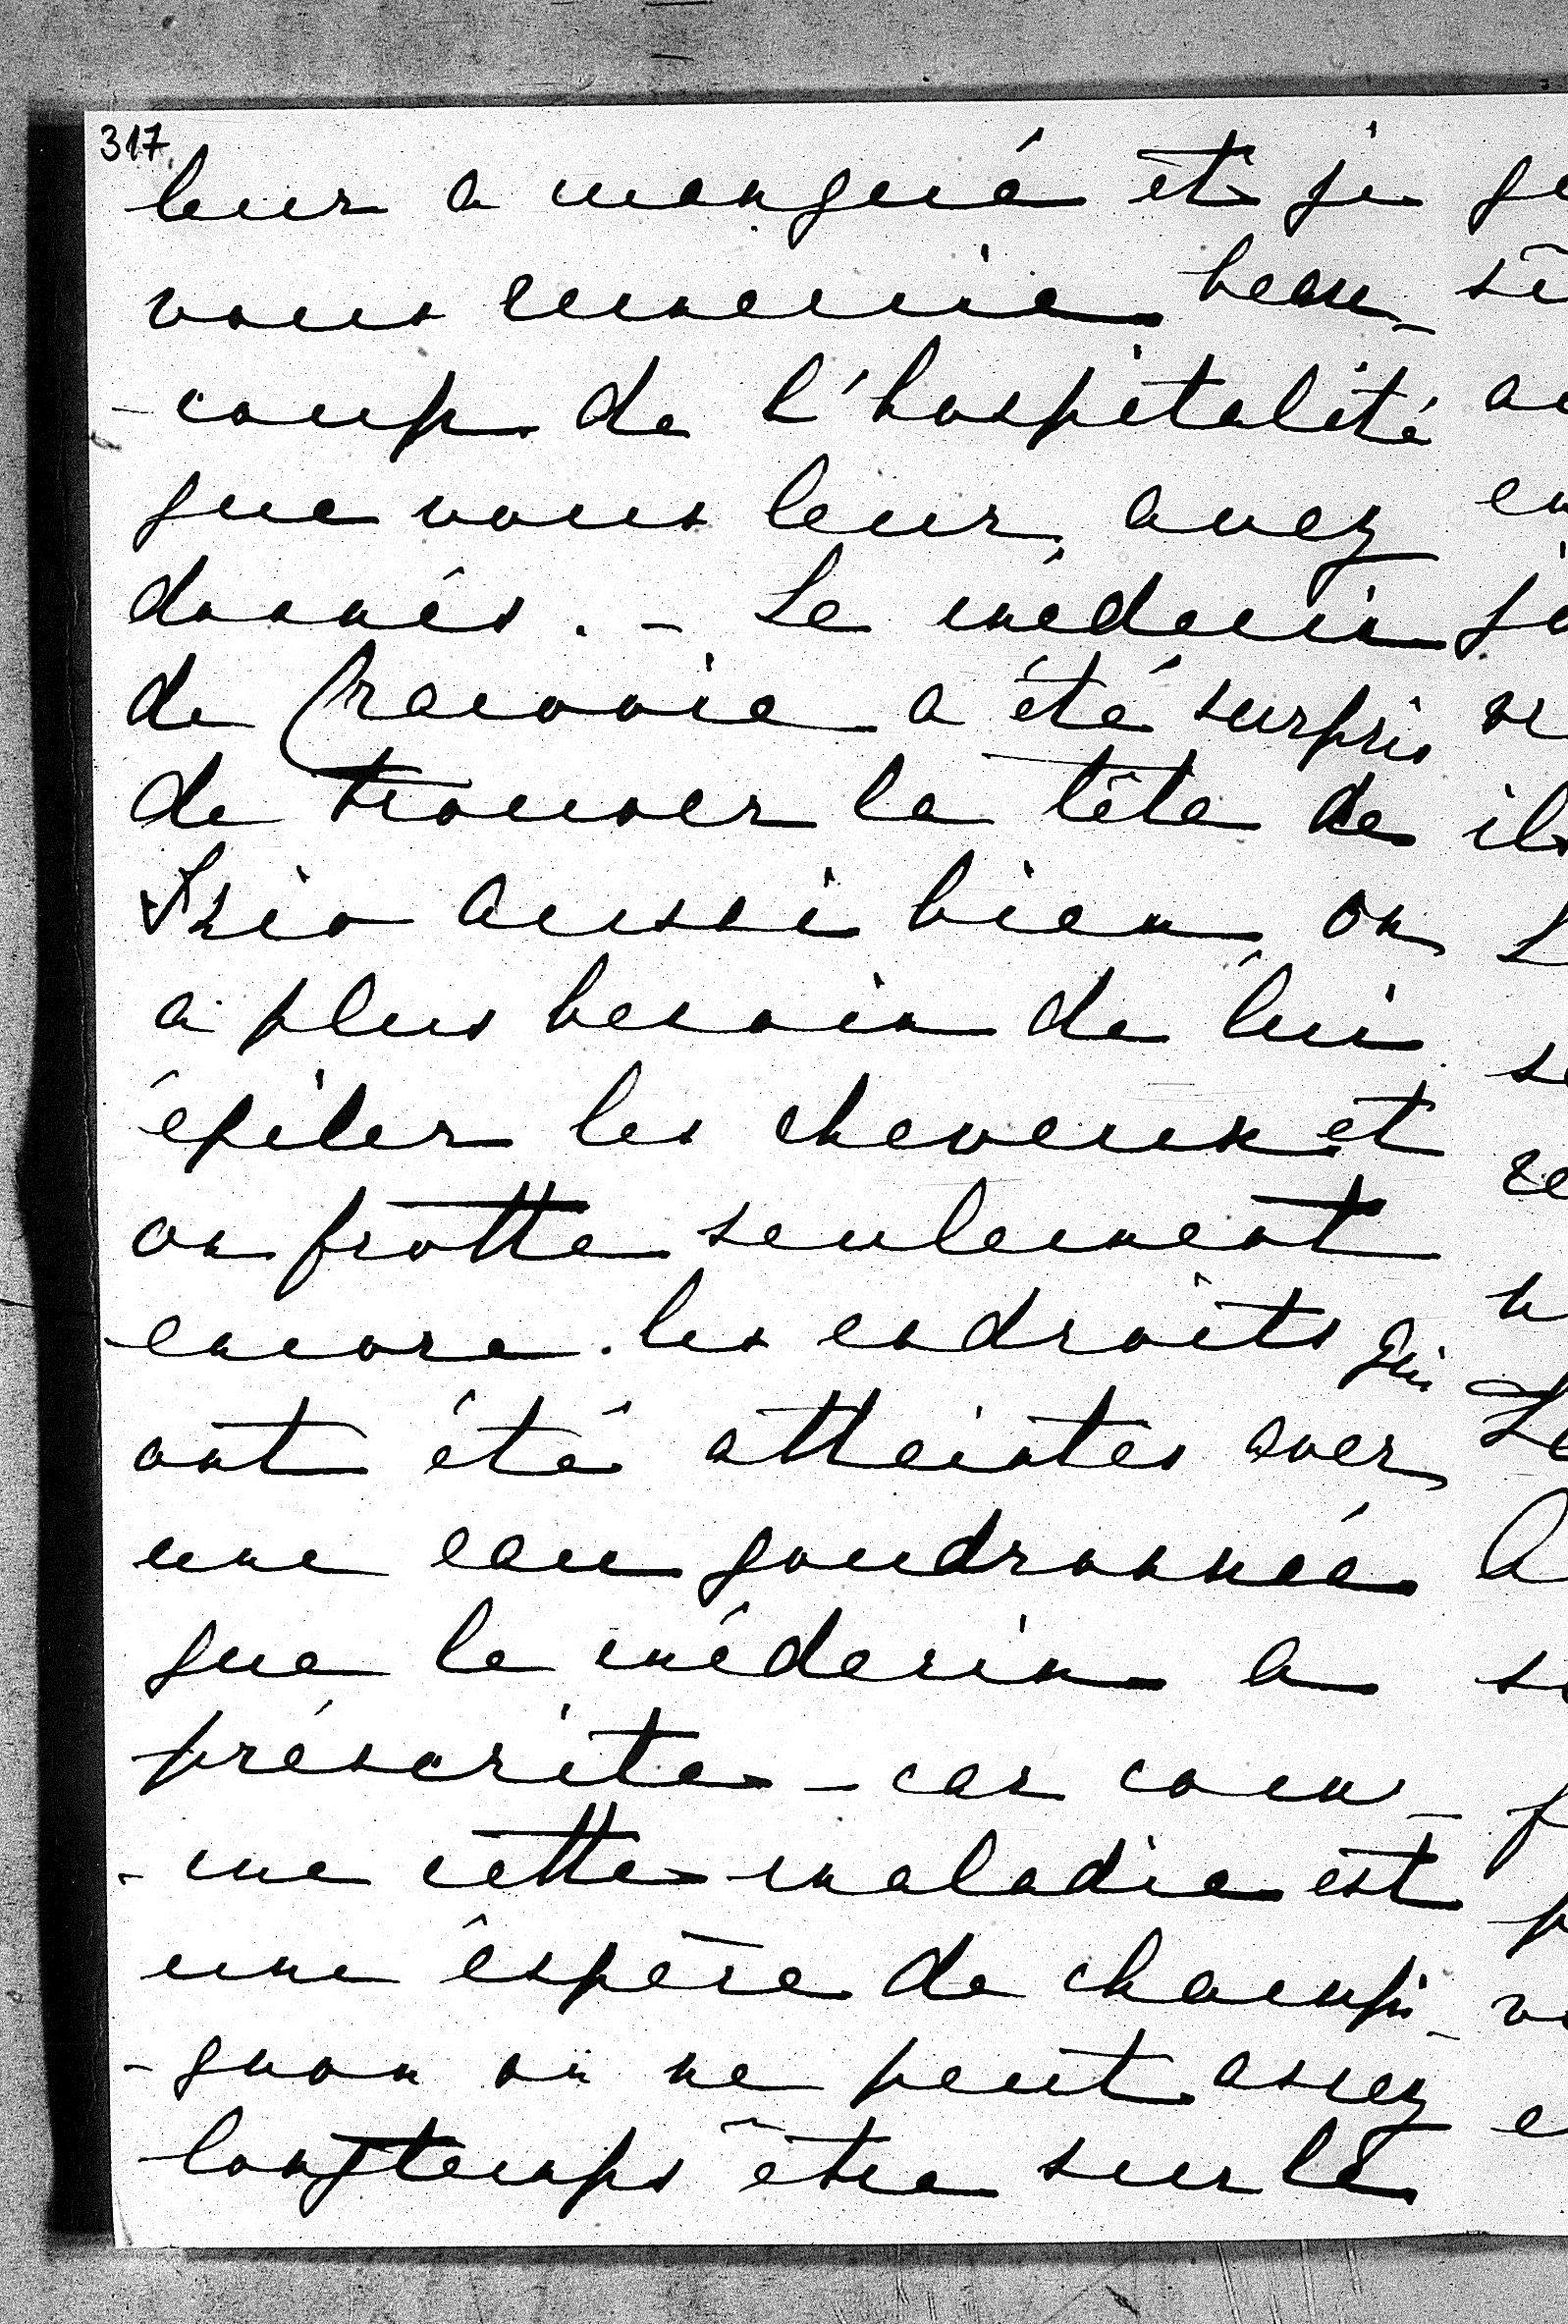 317
leur a manqué et je
vous remercie beau-
-coup de l'hospitalité
que vous leur avez
donnés. - Le médecin
de Cracovie a été surpris
de trouver la tête de
aussi bien, on
a plus besoin de lui
épiler les cheveux et
on frotte seulement
encore les endroits qui
ont été atteintes avec
une eau goudronnée
que le médecin a
préscrite - car com-
-me cette maladie est
une éspèce de champi-
-gnon on ne peut assez
longtemps être sur le